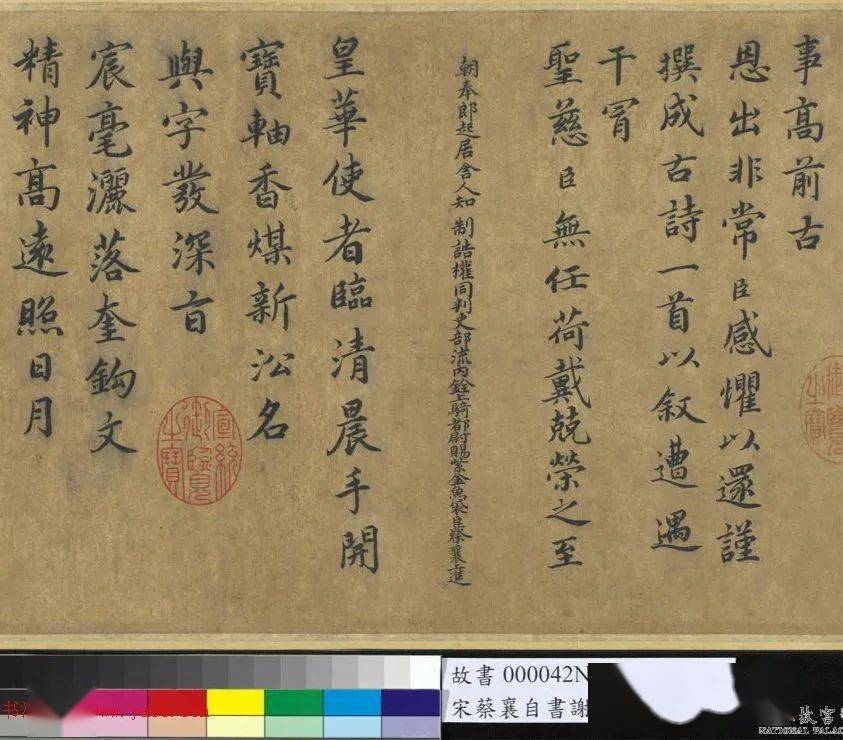 事高前古
恩出非常臣感懼以還謹
撰成古詩一首以叙遭遇
干冐
聖慈臣無任荷戴兢榮之至
朝奉郎起居舍人知制誥權同判吏部流內銓上騎都尉賜紫金魚袋臣蔡襄上進
皇華使者臨清晨手開
寶軸香煤新沁名
與字發深旨
宸毫灑落奎鈎文
精神高遠照日月
宣統御覽之寶
故書 000042N
宋蔡襄自書謝
NATIONAL PALAC